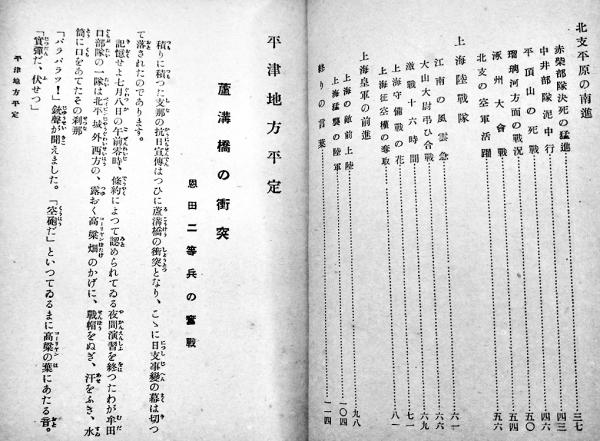 北支平原の南進
赤柴部隊決死の猛進……三七
中井部隊泥中行……四三
平頂山の死戰……四六
瑠璃河方面の戰況……五〇
涿州大會戰……五四
北支の空軍活躍……五六
上海陸戰隊……六一
江南の風雲急……六六
大山大尉弔ひ合戰……六九
激戰十六時間……七一
上海守備戰の花……八一
上海征空權の奪取
上海皇軍の前進
上海の敵前上陸……九八
上海猛襲の陸軍……一〇四
終りの言葉……一一四
平津地方平定
蘆溝橋の衝突
恩田二等兵の奮戰
積りに積つた支那の抗日宣傳はつひに蘆溝橋の衝突となり、こゝに日支事變の幕は切つ
て落されたのであります。
記憶せよ七月八日の午前零時、條約によつて認められてゐる夜間演習を終つたわが牟田
口部隊の一隊は北平城外西方の、露おく高粱畑のかげに、戰帽をぬぎ、汗をふき、水
筒に口をあてたその刹那
「バラバラツ！」銃聲が聞えました。「空砲だ」といつてゐるまに高粱の葉にあたる音。
「實彈だ、伏せつ」
平津地方平定